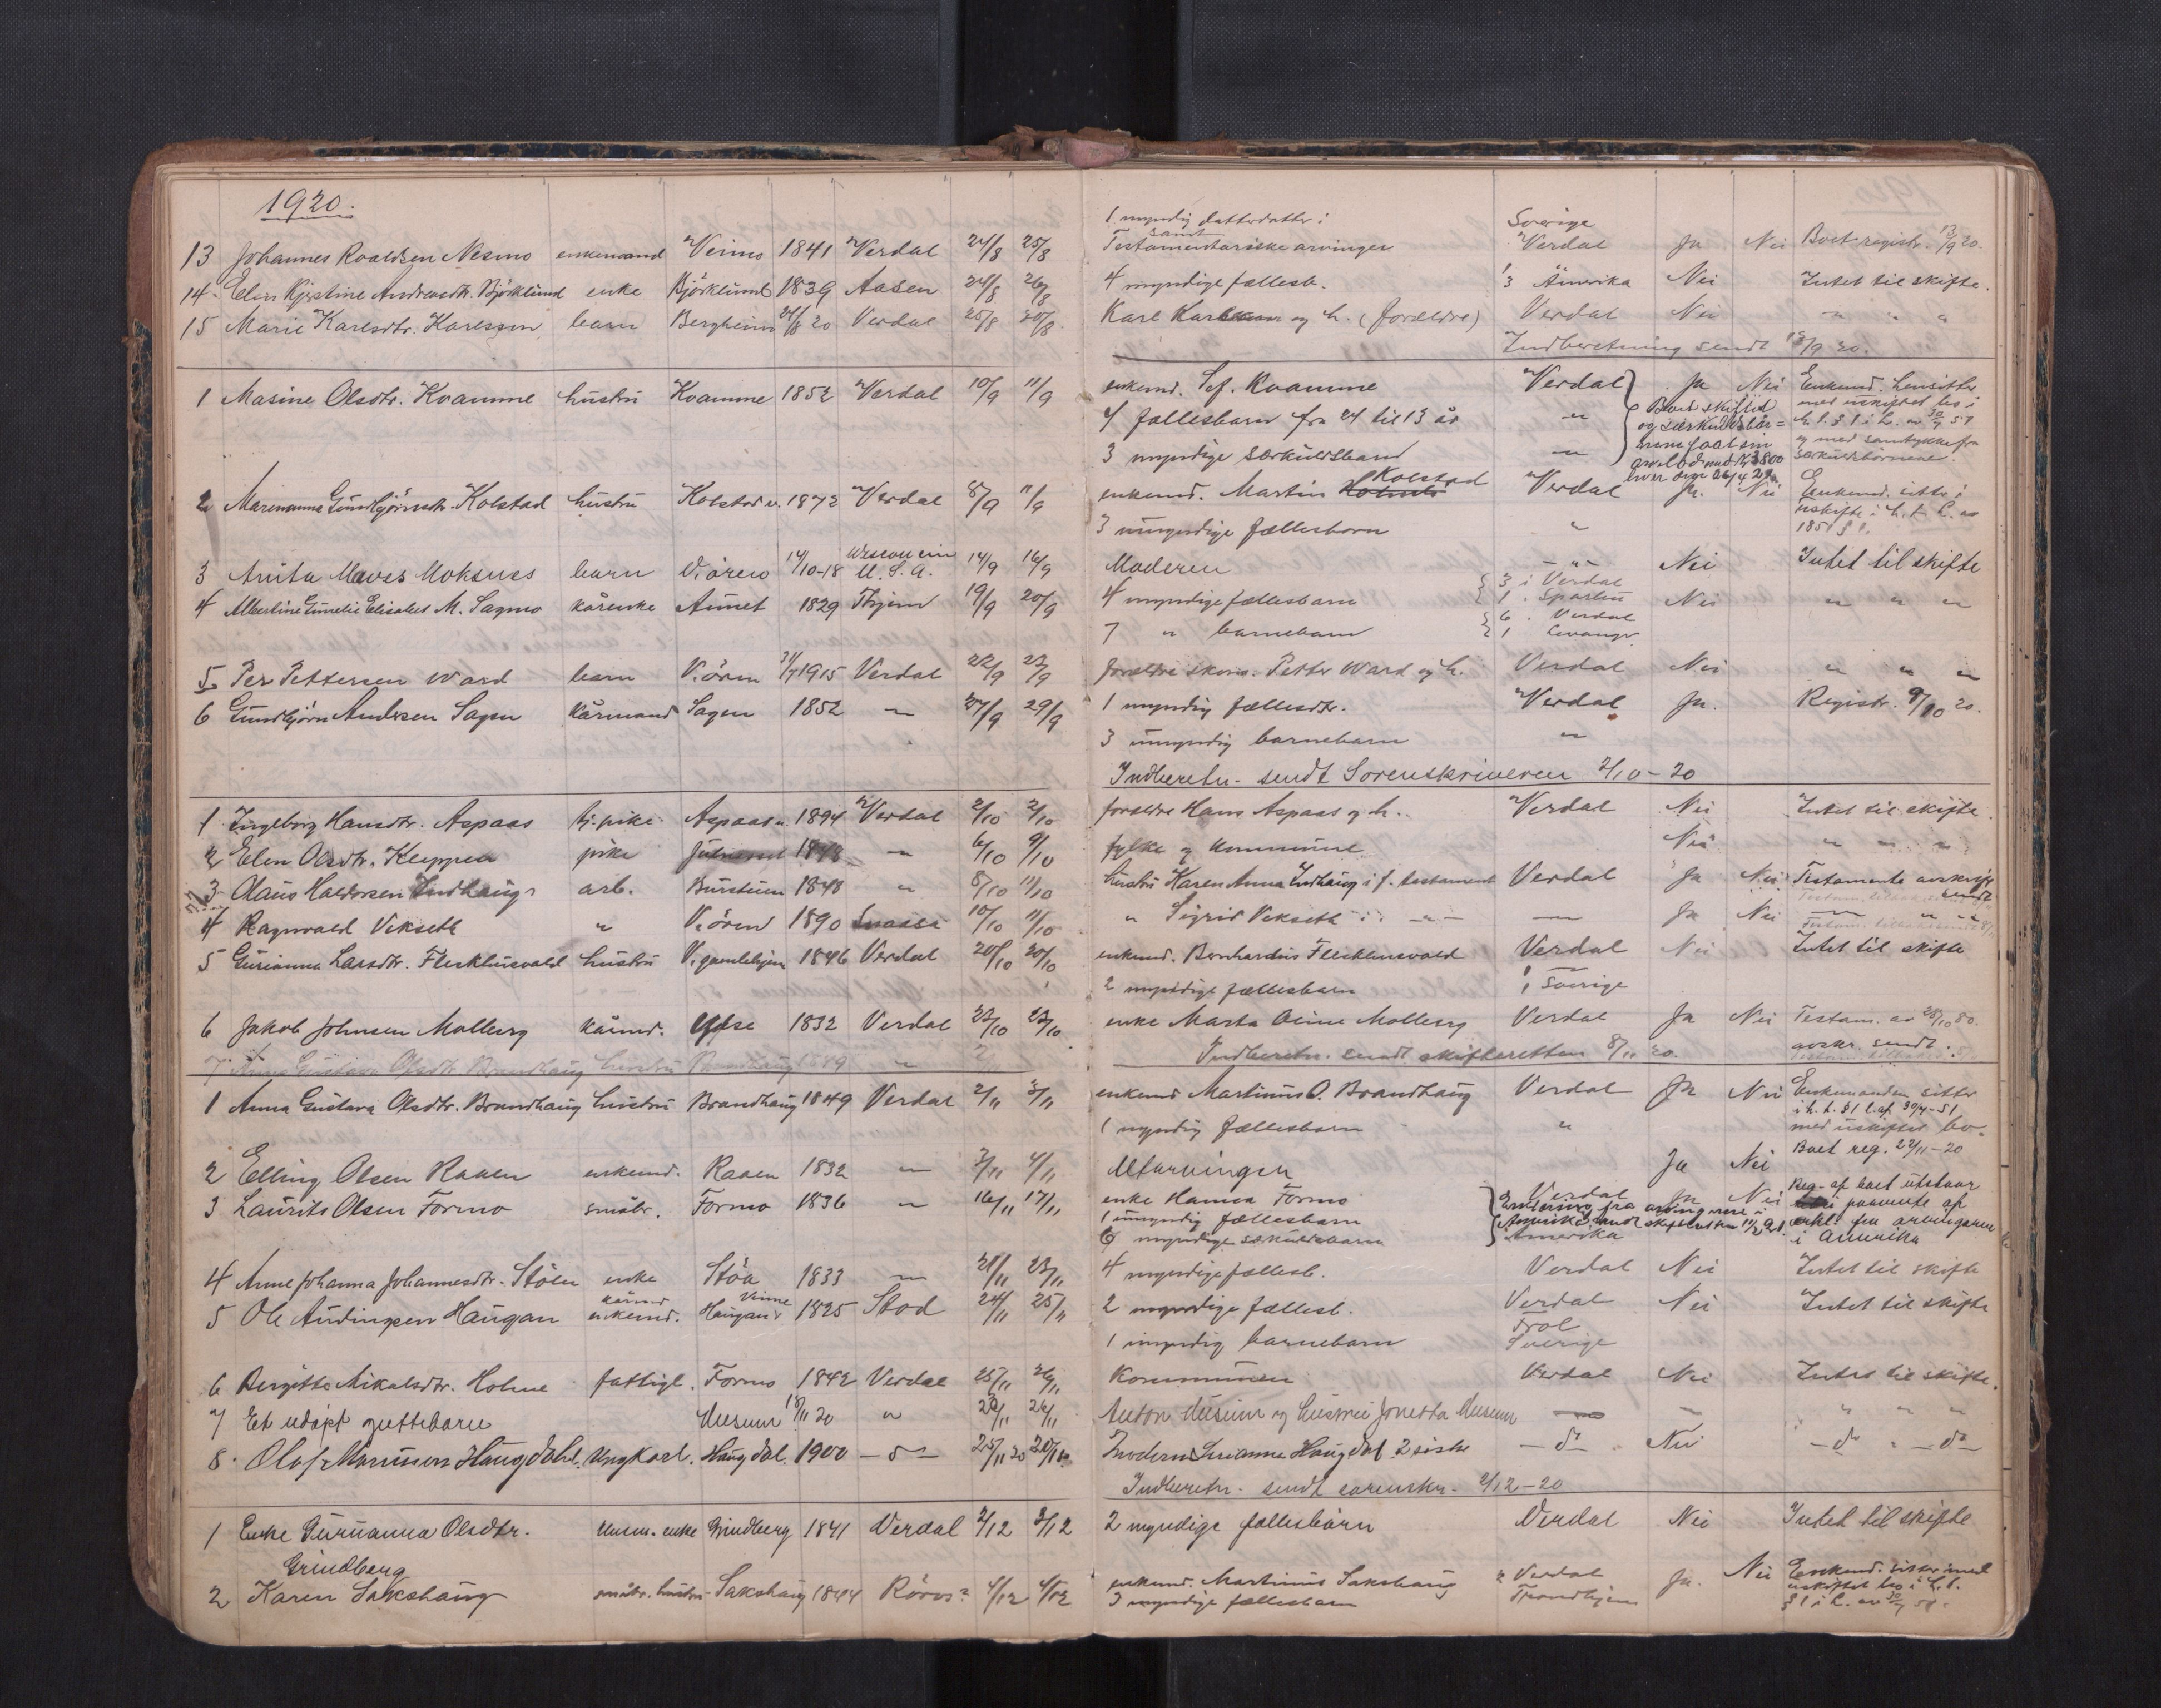 1920.
1 myndig datterdatter i Sverige
13 Johannes Roaldsen Nesmo enkemand Veimo 1841 Verdal 24/8 25/8 samt Testamentariske arvinger Verdal Ja Nei Boet registr. 13/9 20.
14 Elen Kjerstine Andreasdtr. Björklund enke Björklund 1839 Aasen 24/8 26/8 4 myndige fællesb. 3 Amerika Nei Intet til skifte.
15 Marie Karlsdtr. Karlsson barn Bergheim 21/8 20 Verdal 25/8 Karl Karlsson og h. (forældre) Verdal Nei " " "
Indberetning sendt 13/9 20.
1 Masine Olsdtr. Kvamme hustru Kvamme 1852 Verdal 10/9 11/9 enkemd. Kvamme Verdal Ja Nei Enkemd. hensitter
med uskiftet bo i
4 fællesbarn fra 24 til 13 år " Boet skiftet h. t. § 1 i L. av 30/7 51
og særkuldsbör= og med samtykke fra
3 myndige særkuldsbarn " nene faat sin særkuldsbörnene.
arvelod med Kr 3800
hver
2 Marenanna Gundbjörnsdtr. Kolstad hustru Kolstad v. 1872 Verdal 8/9 11/9 enkemd. Martin Kolstad Verdal Ja. Nei Enkemd. sitter i
uskifte i h. t. L. av
3 umyndige fællesbarn " 1851 § 1.
3 Anita Mavis Moksnes barn V. ören 14/10-18 Wisconsin U. S. A. 14/9 16/9 Moderen " Nei Intet til skifte
4 Albertine Elisabet M. Sagmo kårenke Aunet 1829 19/9 20/9 4 myndige fællesbarn 3 i Verdal 1 " Nei " " "
7 " barnebarn 6 " Verdal 1 Levanger
5 Per Pettersen Ward barn V. ören 1915 Verdal 22/9 forældre skom. Petter Ward og h. Verdal Nei " " "
6 Gundbjörn Andersen Sagen Kårmand Sagen 1852 " 27/9 29/9 1 myndig fællesdtr. Verdal Ja. Registr. 9/10 20.
3 umyndig barnebarn "
Indberetn. sendt Sorenskriveren 2/10-20
1 Ingeborg Hansdtr. Aspaas tj. pike Aspaas v. 1894 Verdal 2/10 2/10 forældre Hans Aspaas og h. Verdal Nei Intet til skifte.
2 Elen Olsdtr. Kleppen pike " 6/10 9/10 fylke og kommune Nei " " "
3 Olaus Haldorsen Indhaug arb. Burstuen 1848 " 8/10 11/10 hustru Karen Anna Indhaug i f. testament Verdal Ja Nei Testamente avskrift sendt
4 Ragnvald Vekseth " V. ören 1890 Snaasa 10/10 11/10 " Sigrid Vekseth " " Ja Nei " " "
5 Gurianna Larsdtr. Fleskhusvald hustru V. gamlehjem 1846 Verdal 20/10 20/10 enkemd. Bernhardus Fleskhusvald Verdal Nei Intet til skifte
2 myndige fællesbarn 1 Sverige
6 Jakob Johnsen Molberg kårmd. Ydse 1832 Verdal enke Marta Oline Molberg Verdal Ja Nei Testam. av 28/10 80.
avskr. sendt.
Indberetn. sendt skifteretten 8/11 20.
7. Anna Gustava Olsdtr Brandhaug hustru Brandhaug 1849 "
1 Anna Gustava Olsdtr. Brandhaug hustru Brandhaug 1849 Verdal 2/11 3/11 enkemd Martinus O. Brandhaug Verdal Ja Nei Enkemanden sitter
i h. t. § 1 l. af 30/7-51
1 myndig fællesbarn " med uskiftet bo.
2 Elling Olsen Raaen enkemd. Raaen 1832 " 3/11 4/11 Utarvinger Ja Nei Boet reg. 22/11-20
3 Laurits Olsen Formo småbr. Formo 1836 " 16/11 17/11 enke Hanna Formo Verdal Ja Nei Reg. af boet utstaar
1 umyndig fællesbarn Erklæring fra arvingerne i i paavente af
Amerika sendt skifteretten 11/2 21. erkl. fra arvingerne
6 myndige særkuldsbarn Amerika i Amerika
4 Anne Johanna Johannesdtr. Stöen enke Stöa 1833 " 21/11 23/11 4 myndige fællesb. Verdal Nei Intet til skifte
5 Ole Audingsen Haugan kårmd enkemd. Haugan Vinne 1825 Stod 24/11 25/11 2 myndige fællesb. Verdal Frol Nei Intet til skifte
1 umyndig barnebarn Sverige
6 Bergitte Mikalsdtr. Holme fattigl. Formo 1842 Verdal 25/11 26/11 Kommunen Verdal Nei Intet til skifte.
7 Et udöpt guttebarn Musum 18/11 20 " 26/11 Anton Musum og hustru Jonetta Musum " " " " "
8 Olaf Haugdahl. Ungkarl. Haugdal. 1900 - d° - 25/11 20 Moderen Haugdal. 2 söske - d° - Nei - d° - - d° -
Indberetn. sendt sorenskr. 2/12-20
1 Enke Gurianna Olsdtr. enke Grindberg 1841 Verdal 2/12 3/12 2 myndige fællesbarn Verdal Nei Intet til skifte
Grindberg
2 Karen Sakshaug småbr. hustru Sakshaug 1844 Röros? 4/12 4/12 enkemd. Martinus Sakshaug 2 Verdal Ja. Nei Enkemd. sitter med
3 myndige fællesbarn Trondhjem uskiftet bo i h. t.
§ 1 i L. av 30/7 51.